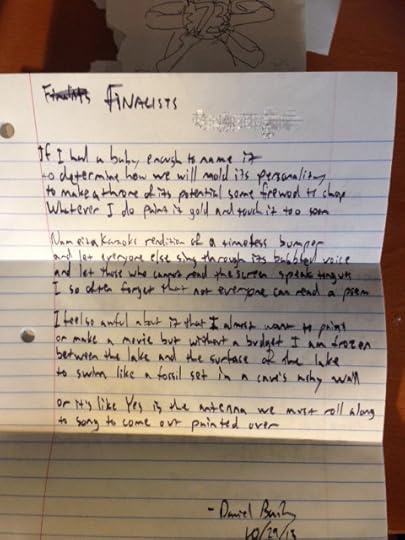 Finalists FINALISTS
If I had a baby enough to name it
to determine how we will mold its personality
to make a throne of its potential some firewood to chop
Whatever I do paint it gold and touch it too soon
a karaoke rendition of a timeless bumper
and let everyone else sing through its bubbled voice
and let those who cannot read the screen speak tongues
I so often forget that not everyone can read a poem
I feel so awful about it that I almost want to paint
or make a movie but without a budget I am frozen
between the lake and the surface of the lake
to swim like a fossil set in a cave's ashy wall
or it's like Yes is the antenna we must roll along
to song to come out painted over
- Daniel
10/29/13